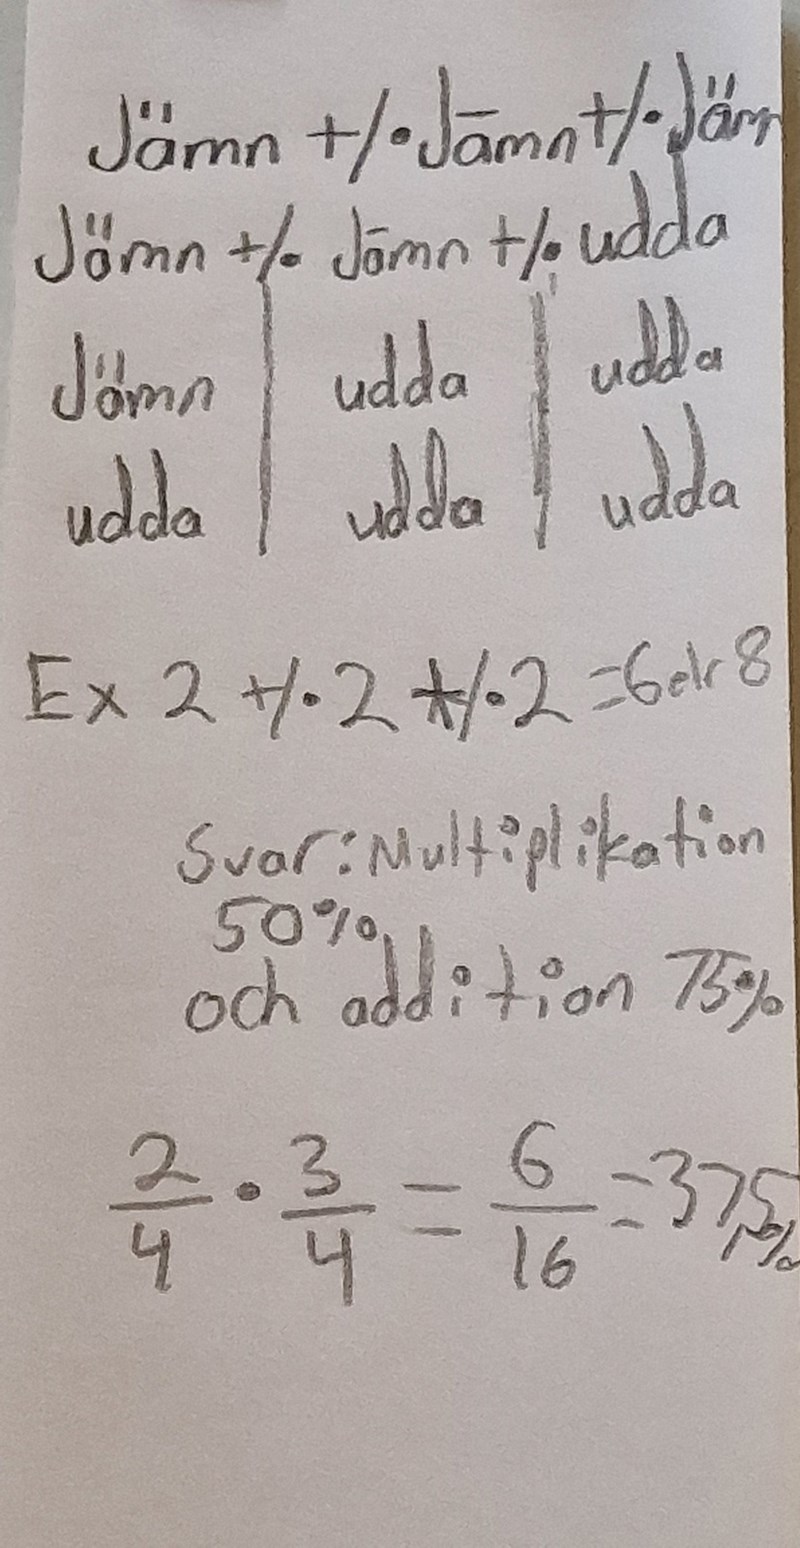 Jämn +/· Jämn +/· Jäm
Jämn +/· Jämn +/· udda
Jämn | udda | udda
udda | udda | udda
Ex 2 +/· 2 +/· 2 = 6 elr 8
Svar: Multiplikation
50%
och addition 75%
2/4 · 3/4 = 6/16 = 37,5%